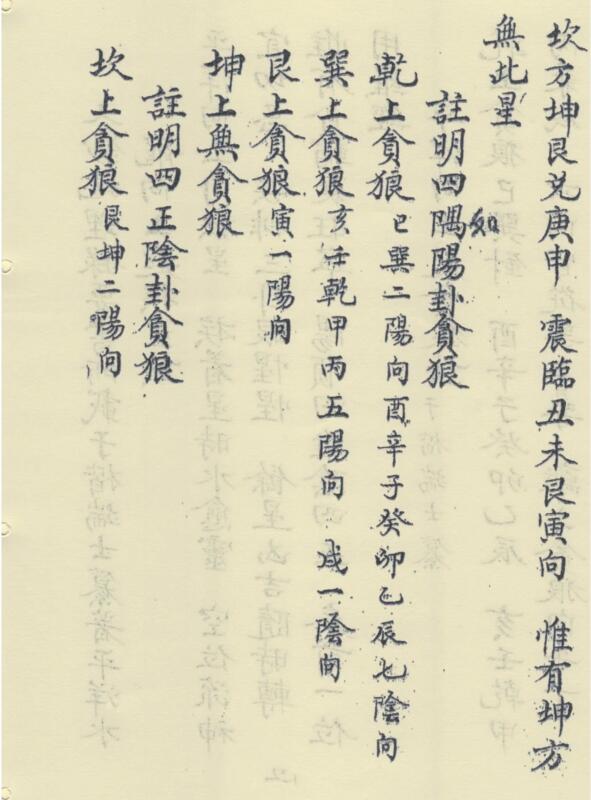 坎方坤艮兑庚申 震臨丑未艮寅向 惟有坤方
無此星
註明四隅陽卦貪狼 如
乾上貪狼 巳巽二陽向酉辛子癸卯乙辰七陰向
巽上貪狼 亥壬乾甲丙五陽向 戌一陰向
艮上貪狼 寅一陽向
坤上無貪狼
註明四正陰卦貪狼
坎上貪狼 艮坤二陽向